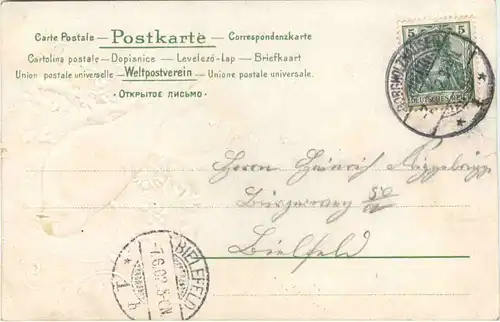 Carte Postale — Postkarte — Correspondenzkarte
Cartolina postale — Dopisnice — Levelező-Lap — Briefkaart
Union postale universelle — Weltpostverein — Unione postale universale.
• ОТКРЫТОЕ ПИСЬМО •
5 5
DEUTSCHES REICH
BORGHOLZHAUSEN
Herrn Heinrich
Bielefeld
BIELEFELD
* 1 b